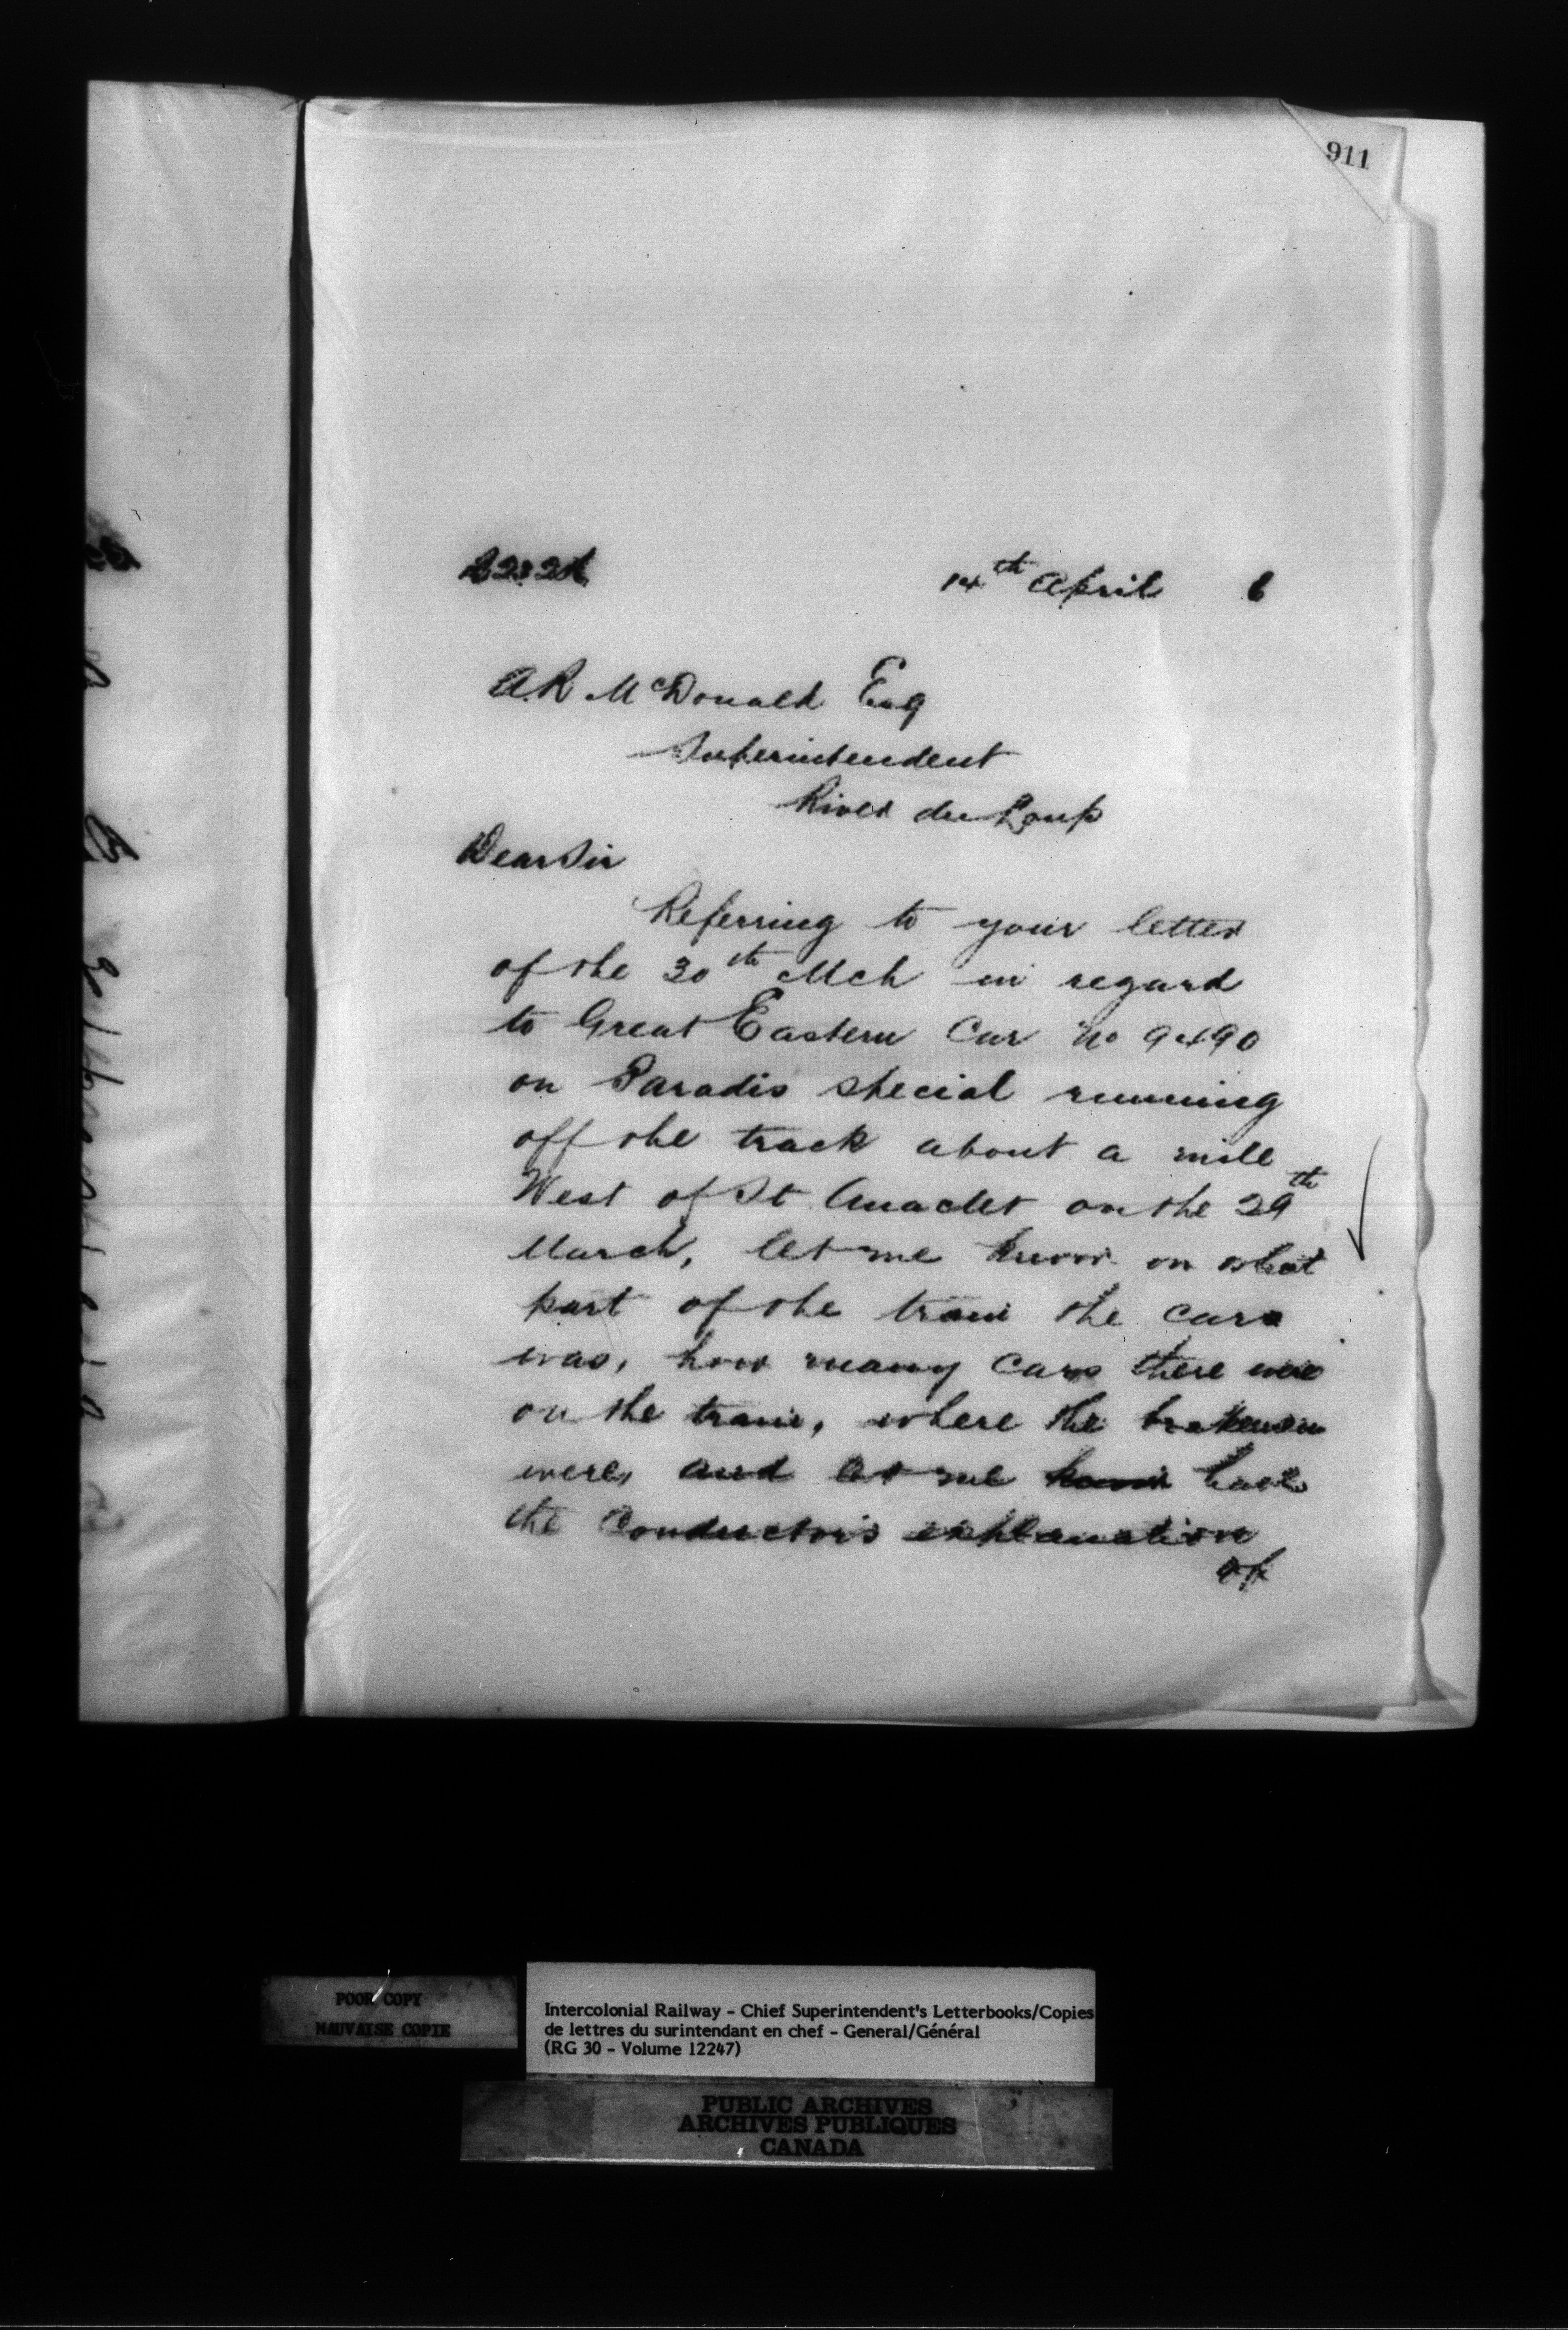 911
14th April 6
A.R McDonald Esq
Superintendent
River du Loup
Dear Sir
Referring to your letter
of the 30th Mch in regard
to Great Eastern Car No 9490
on Paradis special running
off the track about a mile
West of St Anaclet on the 29th
March, let me know on what
part of the train the car
was, how many cars there were
on the train, where the brakemen
were, and let me have
the Conductor's explanation
of
POOR COPY
MAUVAISE COPIE
Intercolonial Railway - Chief Superintendent's Letterbooks/Copies
de lettres du surintendant en chef - General/Général
(RG 30 - Volume 12247)
PUBLIC ARCHIVES
ARCHIVES PUBLIQUES
CANADA